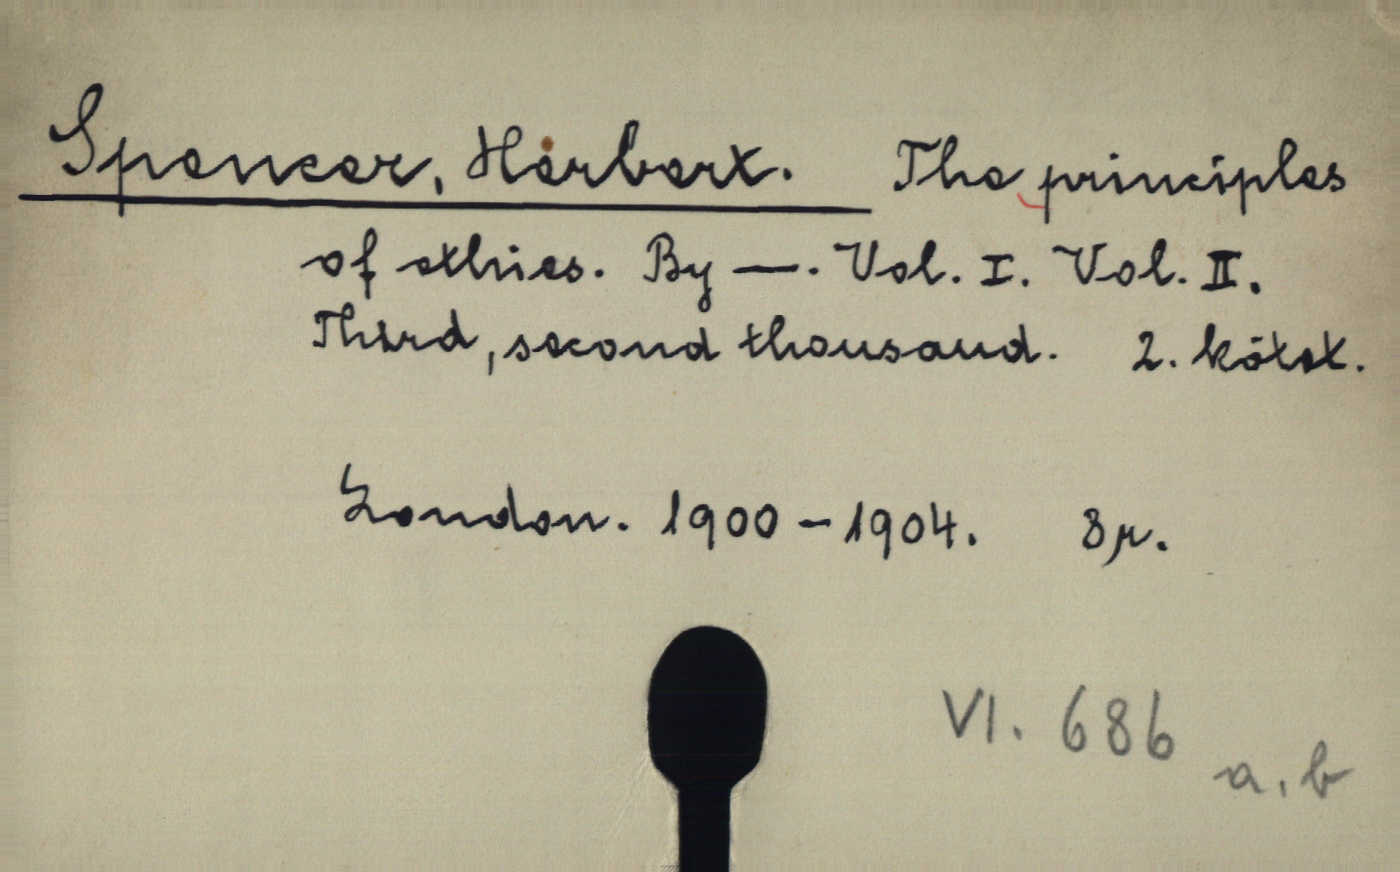 Spencer, Herbert. The principles
of ethics. By —. Vol. I. Vol. II.
Third, second thousand. 2. kötet.
London. 1900 – 1904. 8r.
VI. 686
a, b